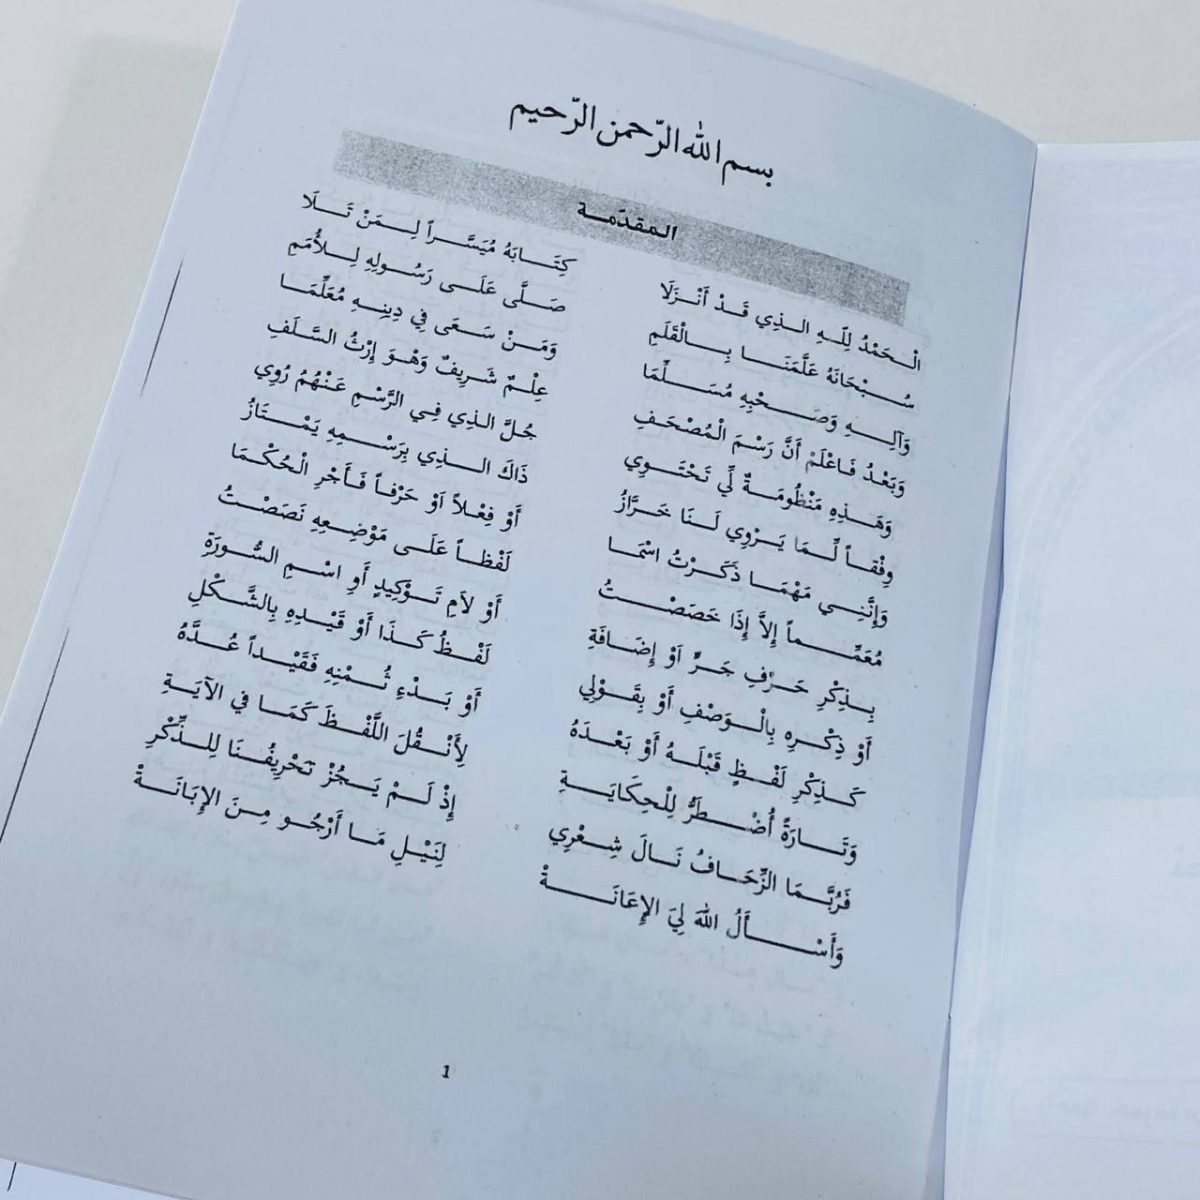 بسم الله الرّحمن الرّحيم
المقدّمة
الْحَمْدُ لِلَّهِ الذِي قَدْ أَنْزَلَا كِتَابَهُ مُيَسَّراً لِمَنْ تَلَا
سُبْحَانَهُ عَلَّمَنَا بِالْقَلَمِ صَلَّى عَلَى رَسُولِهِ لِلأُمَمِ
وَآلِهِ وَصَحْبِهِ مُسَلِّمَا وَمَنْ سَعَى فِي دِينِهِ مُعَلِّمَا
وَبَعْدُ فَاعْلَمْ أَنَّ رَسْمَ الْمُصْحَفِ عِلْمٌ شَرِيفٌ وَهْوَ إِرْثُ السَّلَفِ
وَهَذِهِ مَنْظُومَةٌ لِّي تَحْتَوِي جُلَّ الذِي فِي الرَّسْمِ عَنْهُمُ رُوِي
وِفْقاً لِّمَا يَرْوِي لَنَا خَرَّازُ ذَاكَ الذِي بِرَسْمِهِ يَمْتَازُ
وَإِنَّنِي مَهْمَا ذَكَرْتُ اسْمَا أَوْ فِعْلاً اَوْ حَرْفاً فَأَجْرِ الْحُكْمَا
مُعَمِّماً إِلاَّ إِذَا خَصَصْتُ لَفْظاً عَلَى مَوْضِعِهِ نَصَصْتُ
بِذِكْرِ حَرْفِ جَرٍّ اَوْ إِضَافَةِ أَوْ لاَمِ تَوْكِيدٍ أَوِ اسْمِ السُّورَةِ
أَوْ ذِكْرِهِ بِالْوَصْفِ أَوْ بِقَوْلِي لَفْظُ كَذَا أَوْ قَيْدِهِ بِالشَّكْلِ
كَذِكْرِ لَفْظٍ قَبْلَهُ أَوْ بَعْدَهُ أَوْ بَدْءِ ثُمْنِهِ فَقَيْداً عُدَّهُ
وَتَارَةً أُضْطَرُّ لِلْحِكَايَةِ لِأَنْقُلَ اللَّفْظَ كَمَا فِي الآيَةِ
فَرُبَّمَا الزِّحَافُ نَالَ شِعْرِي إِذْ لَمْ يَجُزْ تَحْرِيفُنَا لِلذِّكْرِ
وَأَسْأَلُ اللهَ لِيَ الإِعَانَةْ لِنَيْلِ مَا أَرْجُو مِنَ الإِبَانَةْ
1